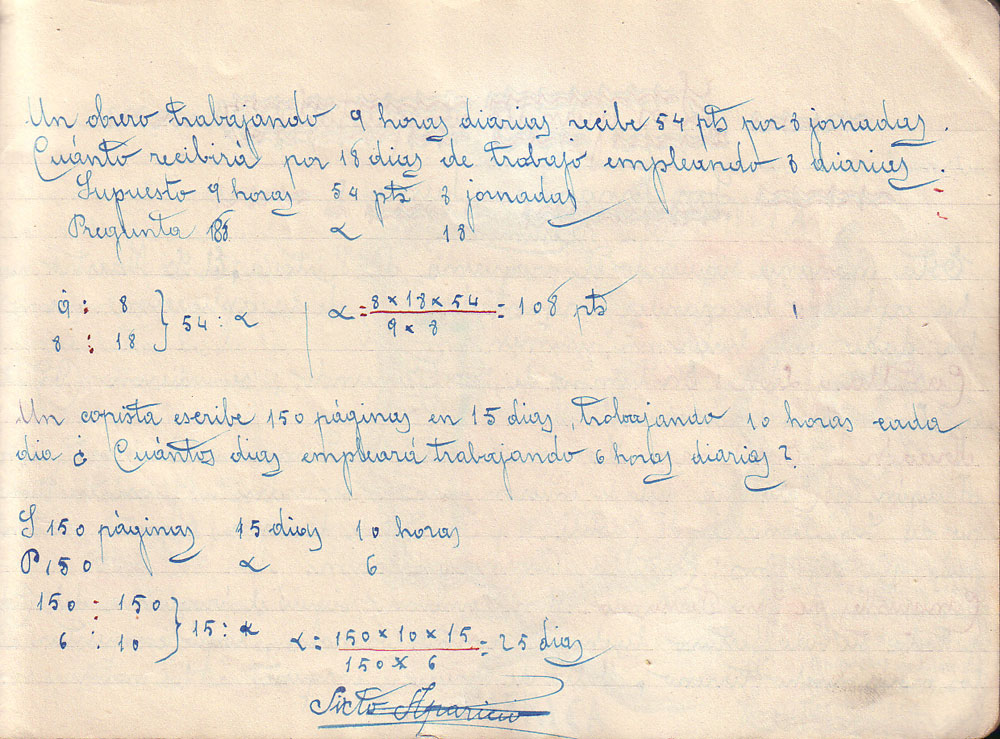 Un obrero trabajando 9 horas diarias recibe 54 pts por 8 jornadas.
Cuánto recibirá por 18 dias de trabajo empleando 8 diarias.
Supuesto 9 horas 54 pts 8 jornadas
Pregunta 8 x 18
9 : 8 } 54 : x x = 8 x 18 x 54 = 108 pts
8 : 18 9 x 8
Un copista escribe 150 páginas en 15 dias, trabajando 10 horas cada
dia ¿ Cuántos dias empleará trabajando 6 horas diarias?
S 150 páginas 15 dias 10 horas
P 150 x 6
150 : 150 } 15 : x x = 150 x 10 x 15 = 25 dias
6 : 10 150 x 6
Sixto Aparicio